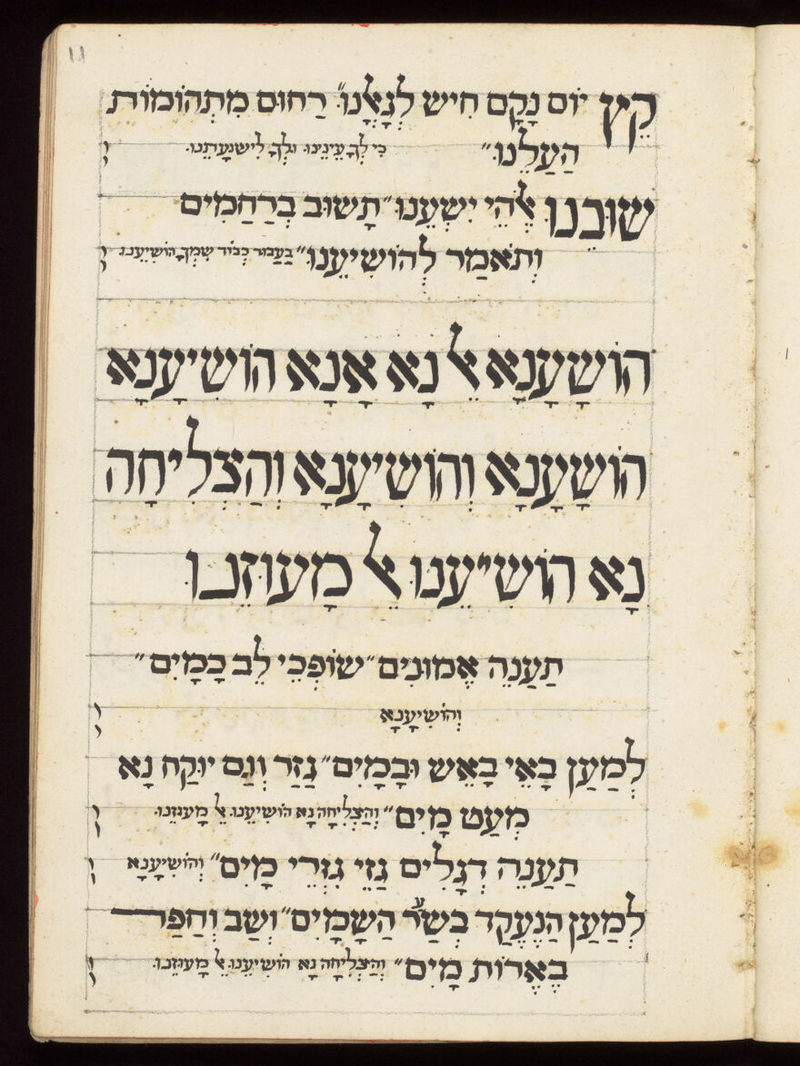 11
קֵץ יוֹם נָקָם חִישׁ לְנָאֱנוּ״ רַחוּם מִתְּהוֹמוֹת
הַעֲלֵנוּ״ כִּי לְךָ עֵינֵינוּ וּלְךָ לִישׁוּעָתֵנוּ.
שׁוּבֵנוּ אֱלֹהֵי יִשְׁעֵנוּ״ תָּשׁוּב בְּרַחֲמִים
וְתֹאמַר לְהוֹשִׁיעֵנוּ״ בַּעֲבוּר כְּבוֹד שִׁמְךָ הוֹשִׁיעֵנוּ.
הוֹשַׁעֲנָא אֵל נָא אָנָא הוֹשִׁיעָנָא
הוֹשַׁעֲנָא וְהוֹשִׁיעָנָא וְהַצְלִיחָה
נָא הוֹשִׁיעֵנוּ אֵל מָעוּזֵּנוּ
תַּעֲנֶה אֱמוּנִים״ שׁוֹפְכֵי לֵב כַּמַּיִם״
וְהוֹשִׁיעָנָא
לְמַעַן בָּא בָּאֵשׁ וּבַמַּיִם״ גָּזַר וְנָם יוּקַּח נָא
מְעַט מַיִם״ וְהַצְלִיחָה נָא הוֹשִׁיעֵנוּ אֵל מָעוּזֵּנוּ.
תַּעֲנֶה דְגָלִים גָּזוּ גִּזְרֵי מַיִם״ וְהוֹשִׁיעָנָא
לְמַעַן הַנֶּעֱקַד בְּשַׁעַר הַשָּׁמַיִם״ וְשָׁב וְחָפַר
בְּאֵרוֹת מַיִם״ וְהַצְלִיחָה נָא הוֹשִׁיעֵנוּ אֵל מָעוּזֵּנוּ.